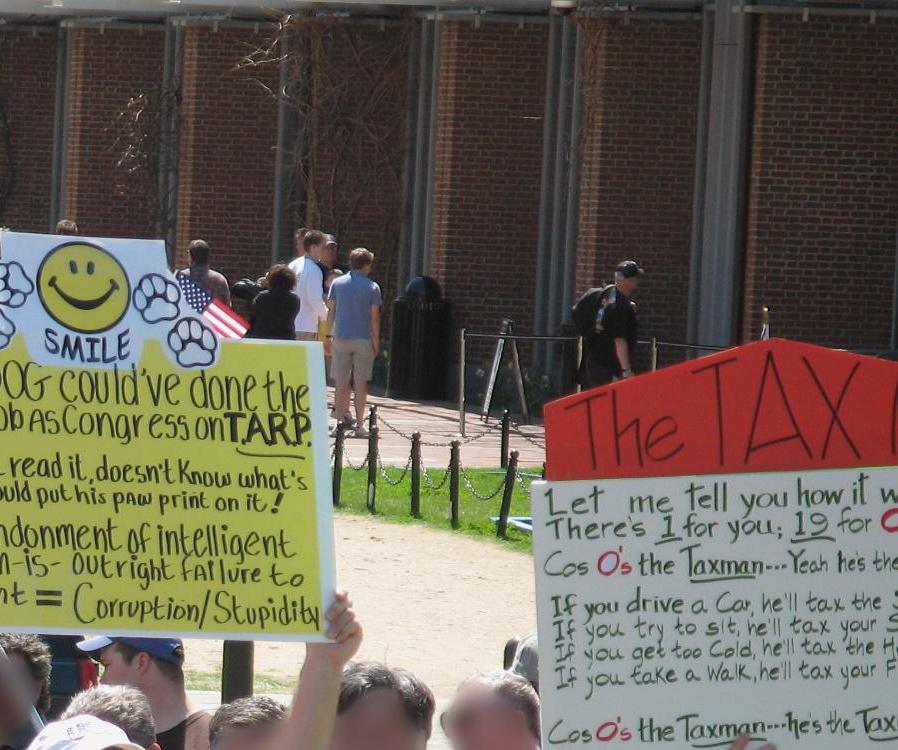 SMILE
DOG could've done the
ob As Congress on T.A.R.P.
read it, doesn't Know what's
ould put his paw print on it!
ndonment of intelligent
n-is- outright failure to
nt = Corruption/Stupidity
The TAX
Let me tell you how it w
There's 1 for you; 19 for O
Cos O's the Taxman---Yeah he's the
If you drive a Car, he'll tax the S
If you try to sit, he'll tax your S
If you get too Cold, he'll tax the He
If you take a Walk, he'll tax your F
Cos O's the Taxman---he's the Tax